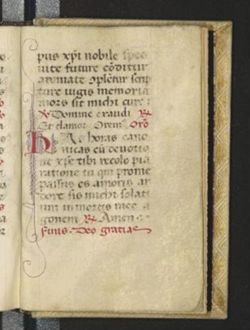 pus xpi nobile spec
uite future conditur
aromate oplctur scrip
ture iugis memoria
mors sit michi cure
℣ Domine exaudi ℟
Et clamor Orem9 Oro
Has horas cano
nicas cu deuotio
ne xpe tibi recolo pia
ratione tu qui pro me
passus es amoris ar
dore sis michi solati
um in mortis mee a
gonem ℟ Amen
finis Deo gratias